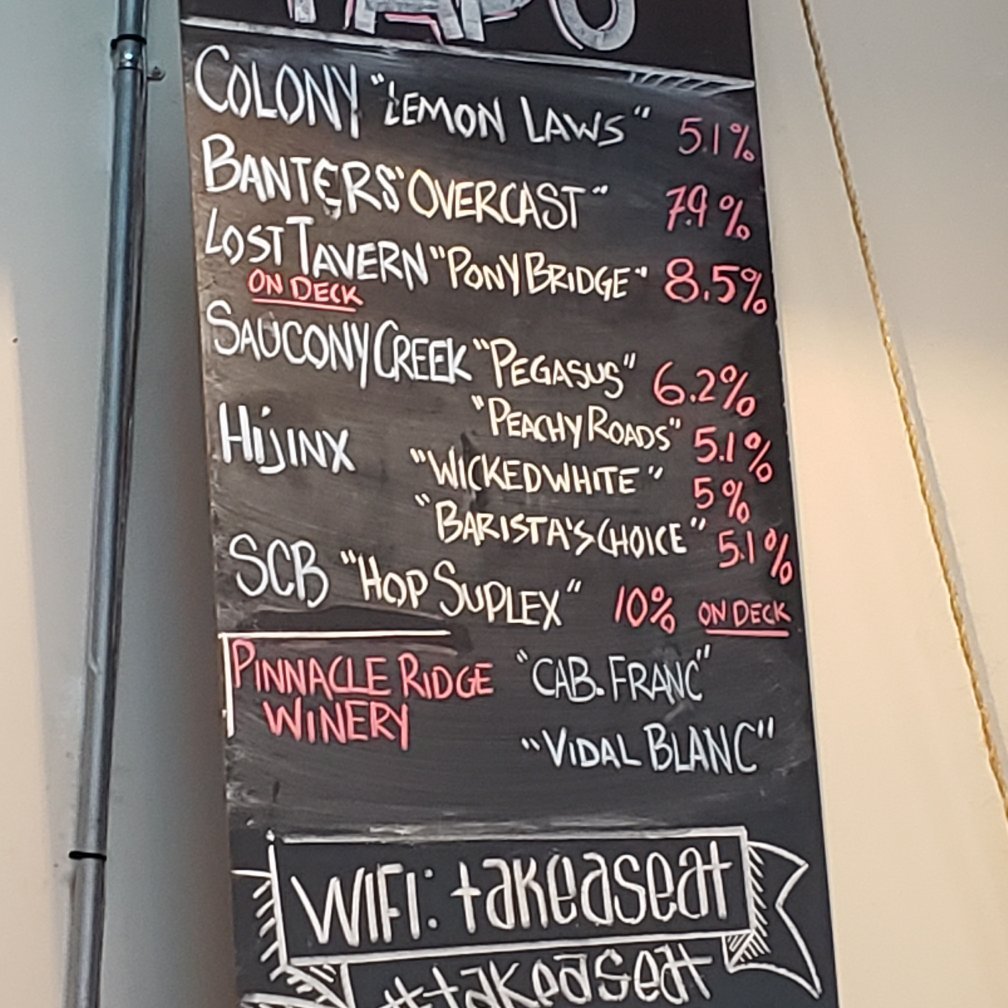 TAPS
COLONY "LEMON LAWS" 5.1%
BANTERS "OVERCAST" 7.9%
LOST TAVERN "PONY BRIDGE" 8.5%
ON DECK
SAUCONY CREEK "PEGASUS" 6.2%
"PEACHY ROADS" 5.1%
HijiNX "WICKED WHITE" 5%
"BARISTA'S CHOICE" 5.1%
SCB "HOP SUPLEX" 10% ON DECK
PINNACLE RIDGE "CAB. FRANC"
WINERY
"VIDAL BLANC"
WIFI: takeaseat
#takeaseat